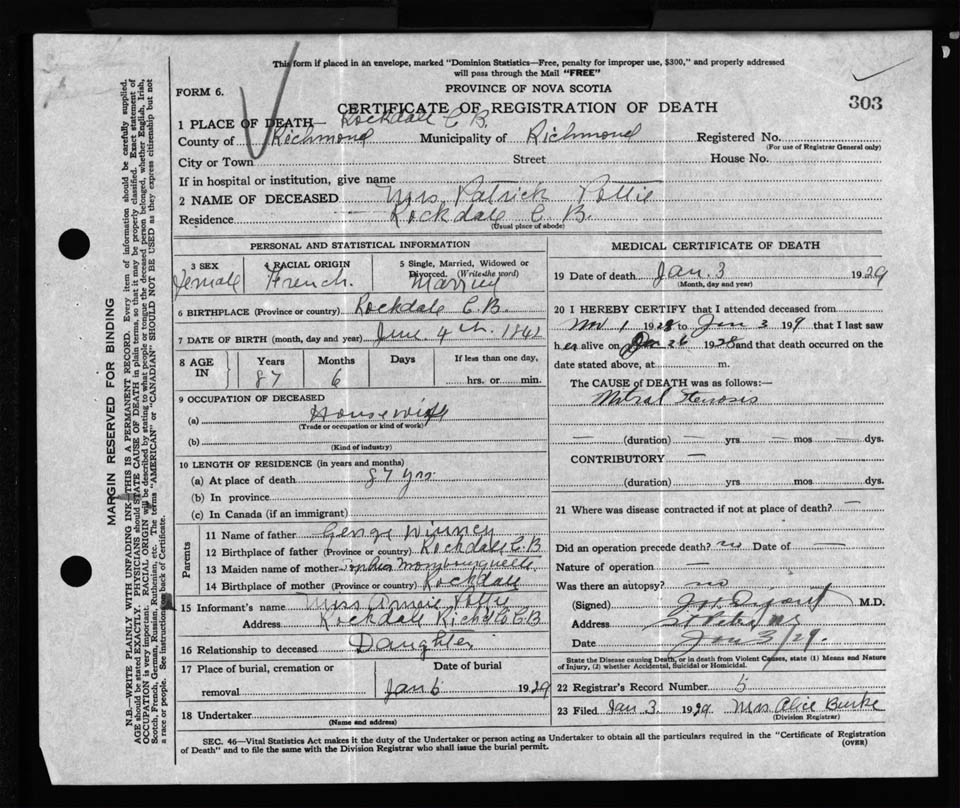 This form if placed in an envelope, marked "Dominion Statistics—Free, penalty for improper use, $300," and properly addressed
will pass through the Mail "FREE"
FORM 6.
PROVINCE OF NOVA SCOTIA
CERTIFICATE OF REGISTRATION OF DEATH
303
1 PLACE OF DEATH— Rockdale C B.
County of Richmond Municipality of Richmond Registered No.
(For use of Registrar General only)
City or Town Street House No.
If in hospital or institution, give name
2 NAME OF DECEASED Mrs Patrick Pottie
Residence Rockdale C. B.
(Usual place of abode)
PERSONAL AND STATISTICAL INFORMATION
3 SEX 4 RACIAL ORIGIN 5 Single, Married, Widowed or
Divorced. (Write the word)
female French.
6 BIRTHPLACE (Province or country) Rockdale C.B.
7 DATE OF BIRTH (month, day and year) June 4th. 1842
8 AGE IN Years Months Days If less than one day,
87 6 hrs. or min.
9 OCCUPATION OF DECEASED
(a) Housewife
(Trade or occupation or kind of work)
(b)
(Kind of industry)
10 LENGTH OF RESIDENCE (in years and months)
(a) At place of death 87 yrs
(b) In province
(c) In Canada (if an immigrant)
Parents
11 Name of father George
12 Birthplace of father (Province or country) Rockdale C.B
13 Maiden name of mother Sophia Mombourquette
14 Birthplace of mother (Province or country) Rockdale
15 Informant's name Miss Annie Pottie
Address Rockdale Rich Co C B
16 Relationship to deceased Daughter
17 Place of burial, cremation or Date of burial
removal Jan 6 1929
18 Undertaker
(Name and address)
MEDICAL CERTIFICATE OF DEATH
19 Date of death Jan. 3 1929
(Month, day and year)
20 I HEREBY CERTIFY that I attended deceased from
1928 to Jan 3 199 that I last saw
h er alive on 26 1928 and that death occurred on the
date stated above, at m.
The CAUSE of DEATH was as follows:—
Mitral Stenosis
— (duration) — yrs — mos — dys.
CONTRIBUTORY —
(duration) yrs mos dys.
21 Where was disease contracted if not at place of death? —
Did an operation precede death? no Date of —
Nature of operation —
Was there an autopsy? no
(Signed) M.D.
Address St Peters NS
Date Jan 3/29.
State the Disease causing Death, or in death from Violent Causes, state (1) Means and Nature
of Injury, (2) whether Accidental, Suicidal or Homicidal.
22 Registrar's Record Number 5
23 Filed Jan 3. 1929 Mrs Alice Burke
(Division Registrar)
SEC. 46—Vital Statistics Act makes it the duty of the Undertaker or person acting as Undertaker to obtain all the particulars required in the "Certificate of Registration
of Death" and to file the same with the Division Registrar who shall issue the burial permit.
(OVER)
MARGIN RESERVED FOR BINDING
N.B.—WRITE PLAINLY WITH UNFADING INK—THIS IS A PERMANENT RECORD. Every item of information should be carefully supplied.
AGE should be stated EXACTLY. PHYSICIANS should STATE CAUSE OF DEATH in plain terms, so that it may be properly classified. Exact statement of
OCCUPATION is very important. RACIAL ORIGIN will be described by stating to what people or tongue the deceased person belonged, whether English, Irish,
Scotch, French, German, Russian, Ruthenian, etc. The terms "AMERICAN" or "CANADIAN" SHOULD NOT BE USED as they express citizenship but not
a race or people. See instructions on back of Certificate.